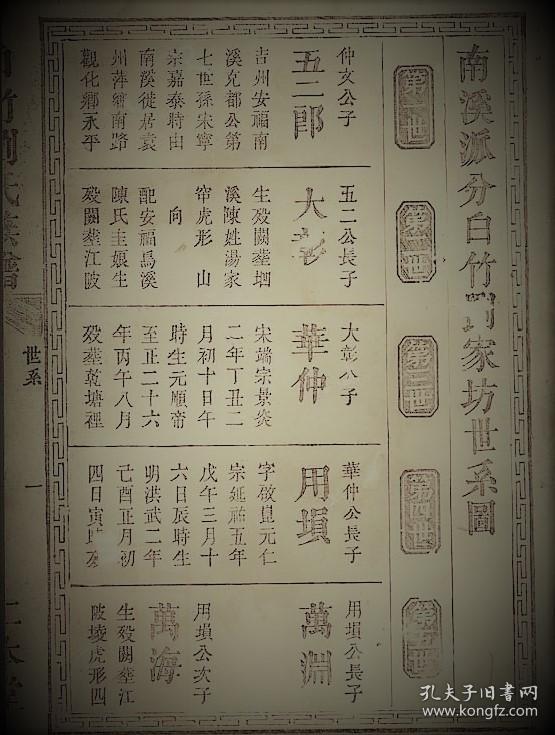 南溪派分白竹劉家坊世系圖
第一世
第二世
第三世
第四世
第五世
仲文公子
五二郎
吉州安福南
溪充都公第
七世孫宋寧
宗嘉泰時由
南溪徙居袁
州萍鄉南路
觀化鄉永平
五二公長子
大彰
生殁闕塟堋
溪陳姓湯家
帘虎形山
向
配安福馬溪
陳氏圭娘生
殁闕塟江陂
大彰公子
華仲
宋端宗景炎
二年丁丑二
月初十日午
時生元順帝
至正二十六
年丙午八月
殁塟乾塘裡
華仲公長子
用塤
元仁
宗延祐五年
戊午三月十
六日辰時生
明洪武二年
己酉正月初
四日寅時殁
用塤公長子
萬淵
用塤公次子
萬海
生殁闕塟江
陂塘虎形四
白竹劉氏族譜
世系
一
孔夫子旧书网
www.kongfz.com